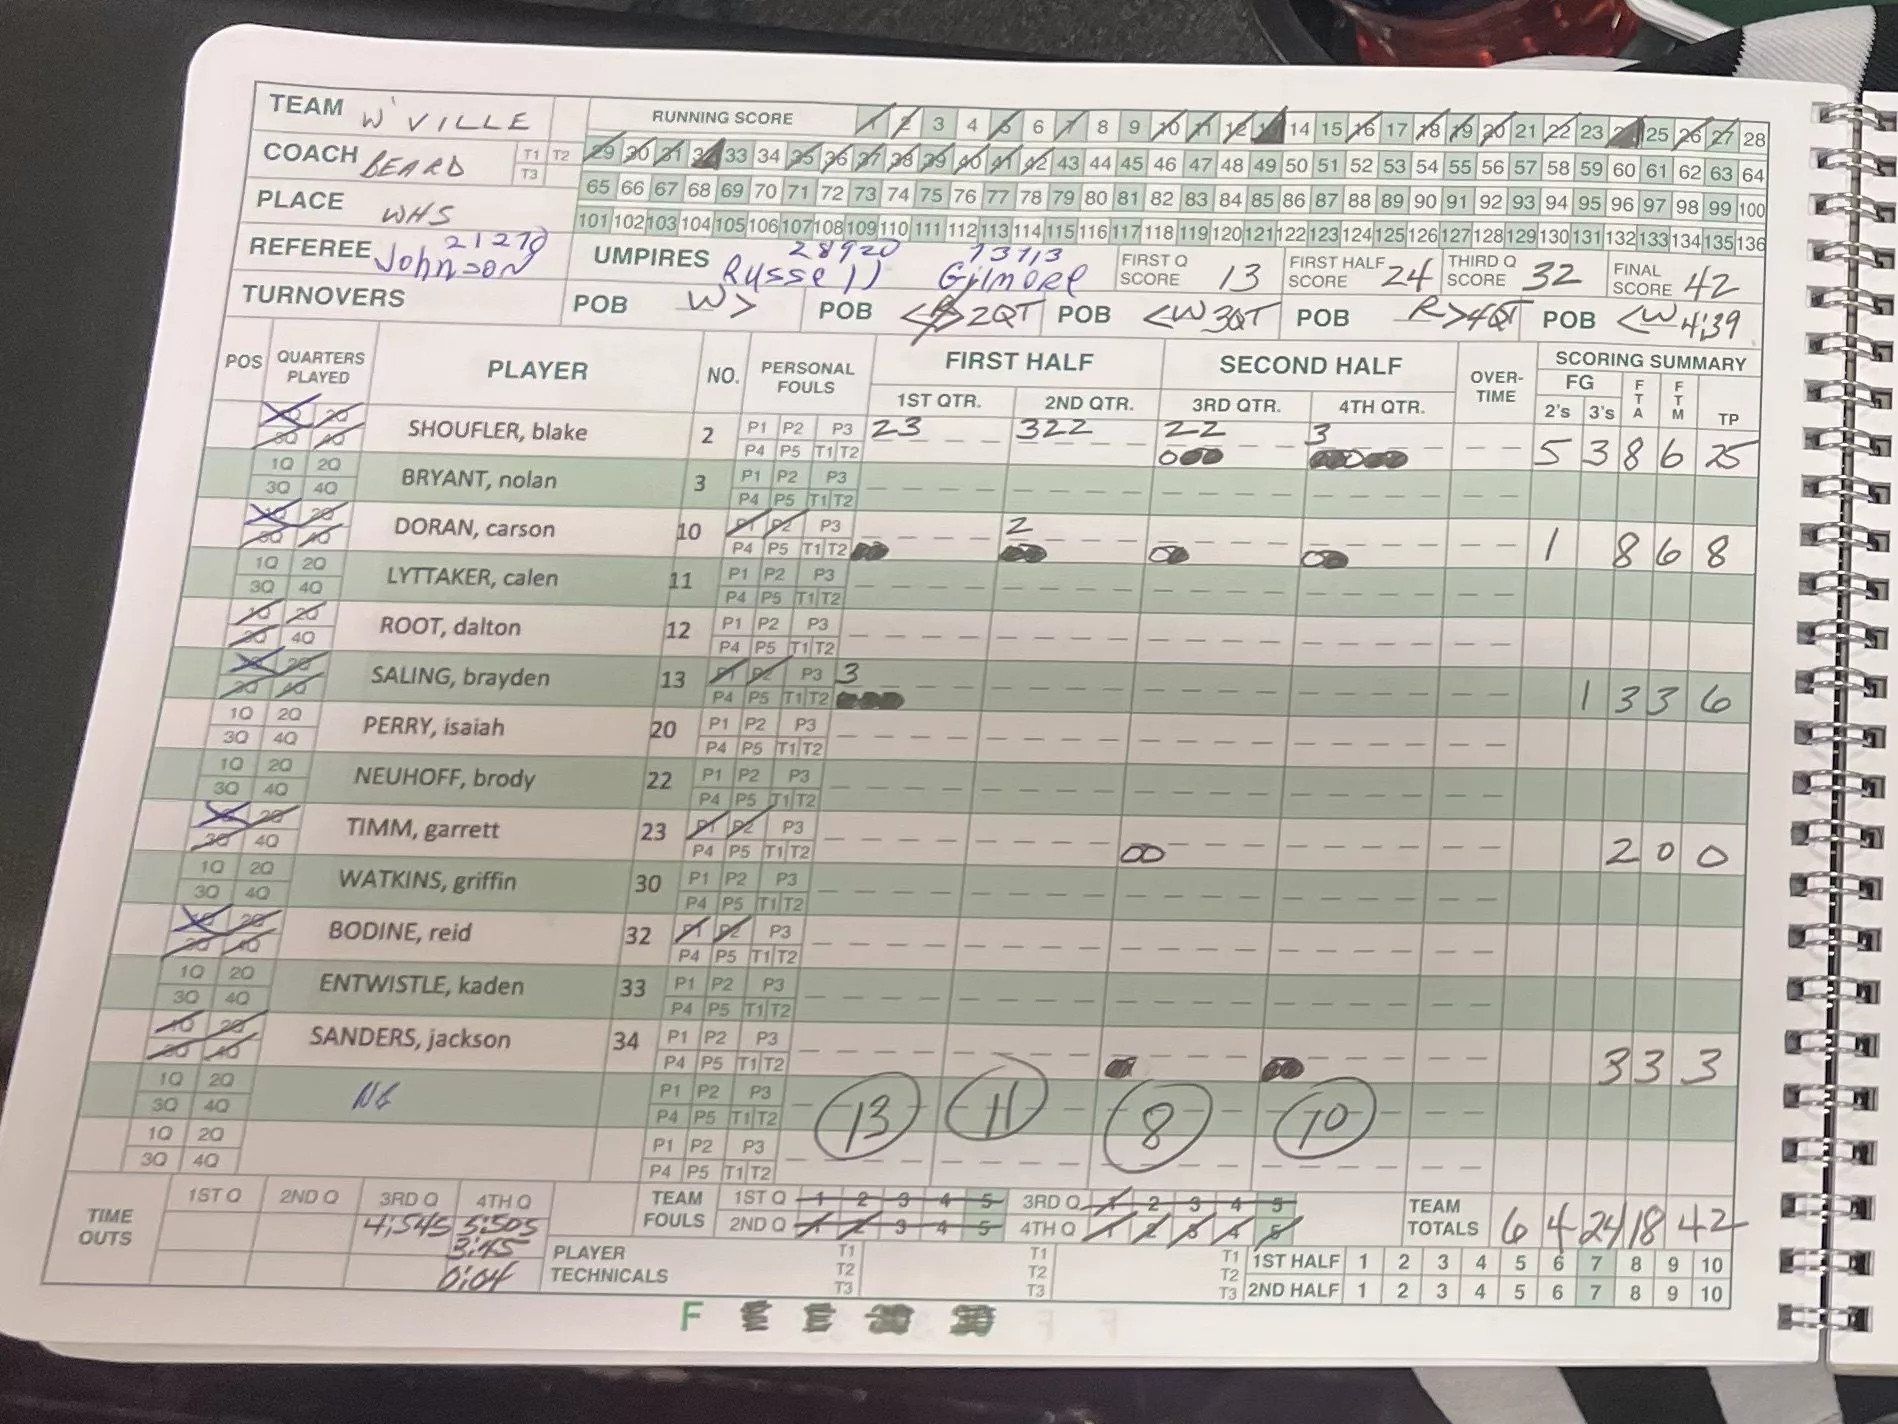 TEAM W'VILLE RUNNING SCORE 1 2 3 4 5 6 7 8 9 10 11 12 13 14 15 16 17 18 19 20 21 22 23 24 25 26 27 28
COACH BEARD T1 T2 T3 29 30 31 32 33 34 35 36 37 38 39 40 41 42 43 44 45 46 47 48 49 50 51 52 53 54 55 56 57 58 59 60 61 62 63 64
65 66 67 68 69 70 71 72 73 74 75 76 77 78 79 80 81 82 83 84 85 86 87 88 89 90 91 92 93 94 95 96 97 98 99 100
PLACE WHS 101 102 103 104 105 106 107 108 109 110 111 112 113 114 115 116 117 118 119 120 121 122 123 124 125 126 127 128 129 130 131 132 133 134 135 136
REFEREE Johnson 21270 UMPIRES Russell 28920 Gilmore 73713 FIRST Q SCORE 13 FIRST HALF SCORE 24 THIRD Q SCORE 32 FINAL SCORE 42
TURNOVERS POB W> POB 2QT POB <W 3QT POB R> 4QT POB <W 4:39
POS QUARTERS PLAYED PLAYER NO. PERSONAL FOULS FIRST HALF SECOND HALF OVER-TIME SCORING SUMMARY
1ST QTR. 2ND QTR. 3RD QTR. 4TH QTR. FG 2's 3's FTA FTM TP
1Q 2Q SHOUFLER, blake 2 P1 P2 P3 23 322 22 3 5 3 8 6 25
3Q 4Q P4 P5 T1 T2
1Q 2Q BRYANT, nolan 3 P1 P2 P3
3Q 4Q P4 P5 T1 T2
1Q 2Q DORAN, carson 10 P1 P2 P3 2 1 8 6 8
3Q 4Q P4 P5 T1 T2
1Q 2Q LYTTAKER, calen 11 P1 P2 P3
3Q 4Q P4 P5 T1 T2
1Q 2Q ROOT, dalton 12 P1 P2 P3
3Q 4Q P4 P5 T1 T2
1Q 2Q SALING, brayden 13 P1 P2 P3 3 1 3 3 6
3Q 4Q P4 P5 T1 T2
1Q 2Q PERRY, isaiah 20 P1 P2 P3
3Q 4Q P4 P5 T1 T2
1Q 2Q NEUHOFF, brody 22 P1 P2 P3
3Q 4Q P4 P5 T1 T2
1Q 2Q TIMM, garrett 23 P1 P2 P3 2 0 0
3Q 4Q P4 P5 T1 T2
1Q 2Q WATKINS, griffin 30 P1 P2 P3
3Q 4Q P4 P5 T1 T2
1Q 2Q BODINE, reid 32 P1 P2 P3
3Q 4Q P4 P5 T1 T2
1Q 2Q ENTWISTLE, kaden 33 P1 P2 P3
3Q 4Q P4 P5 T1 T2
1Q 2Q SANDERS, jackson 34 P1 P2 P3 3 3 3
3Q 4Q P4 P5 T1 T2
1Q 2Q P1 P2 P3 13 11 8 10
3Q 4Q P4 P5 T1 T2
1Q 2Q P1 P2 P3
3Q 4Q P4 P5 T1 T2
TIME OUTS 1ST Q 2ND Q 3RD Q 4TH Q TEAM FOULS 1ST Q 1 2 3 4 5 3RD Q 1 2 3 4 5 TEAM TOTALS 6 4 24 18 42
4:545 5:505 2ND Q 1 2 3 4 5 4TH Q 1 2 3 4 5
3:45 PLAYER TECHNICALS T1 T2 T3 T1 T2 T3 T1 T2 T3 1ST HALF 1 2 3 4 5 6 7 8 9 10
0:04 2ND HALF 1 2 3 4 5 6 7 8 9 10
F